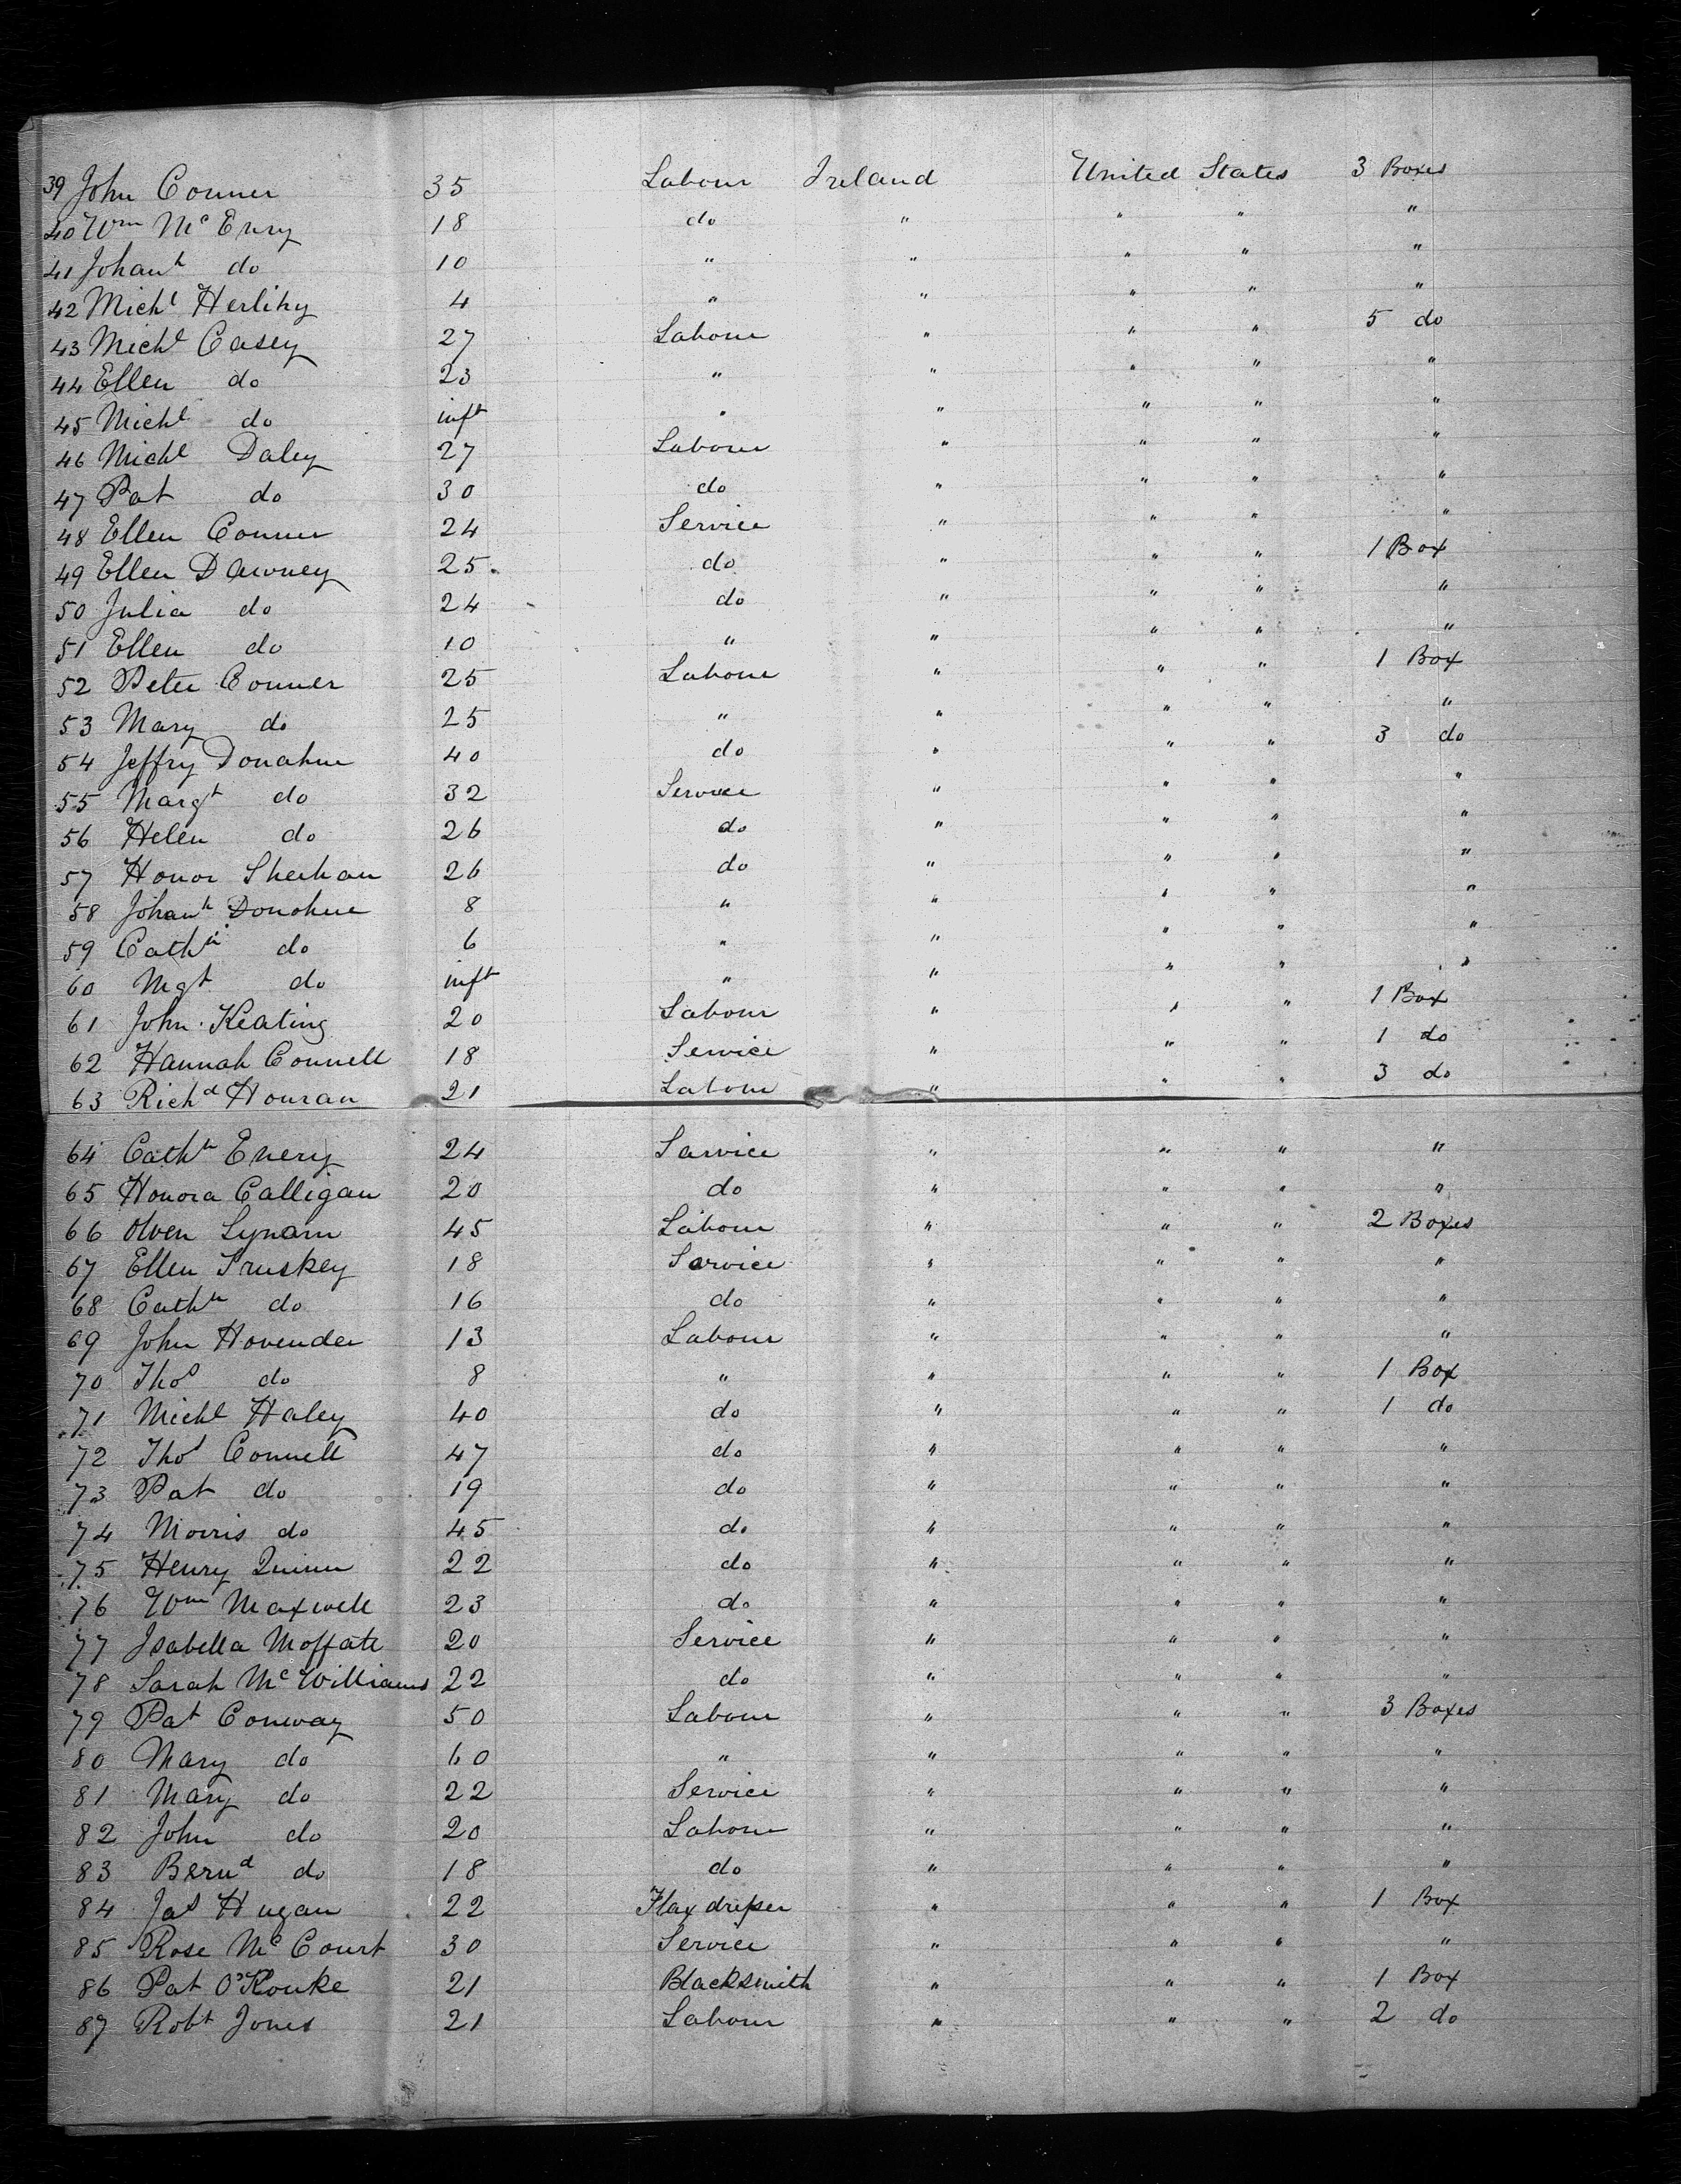 39 John Conner 35 Labour Ireland United States 3 Boxes
40 Wm Mc Enry 18 do " " " "
41 Johanh do 10 " " " " "
42 Michl Herlihy 4 " " " " "
43 Michl Casey 27 Labour " " " 5 do
44 Ellen do 23 " " " " "
45 Michl do inft " " " " "
46 Michl Daley 27 Labour " " " "
47 Pat do 30 do " " " "
48 Ellen Conner 24 Service " " " "
49 Ellen Dawney 25 do " " " 1 Box
50 Julia do 24 do " " " "
51 Ellen do 10 " " " " "
52 Peter Conner 25 Labour " " " 1 Box
53 Mary do 25 " " " " "
54 Jeffry Donahue 40 do " " " 3 do
55 Margt do 32 Service " " " "
56 Helen do 26 do " " " "
57 Honor Sheehan 26 do " " " "
58 Johanh Donohue 8 " " " " "
59 Cathn do 6 " " " " "
60 Mgt do inft " " " " "
61 John Keating 20 Labour " " " 1 Box
62 Hannah Connell 18 Service " " " 1 do
63 Richd Houran 21 Labour " " " 3 do
64 Cathn Enery 24 Sarvice " " " "
65 Honora Calligan 20 do " " " "
66 Owen Lynam 45 Labour " " " 2 Boxes
67 Ellen Truskey 18 Sarvice " " " "
68 Cathn do 16 do " " " "
69 John Hovenden 13 Labour " " " "
70 Thos do 8 " " " " 1 Box
71 Michl Haley 40 do " " " 1 do
72 Thos Connell 47 do " " " "
73 Pat do 19 do " " " "
74 Morris do 45 do " " " "
75 Henry Quinn 22 do " " " "
76 Wm Maxwell 23 do " " " "
77 Isabella Moffate 20 Service " " " "
78 Sarah Mc Williams 22 do " " " "
79 Pat Conway 50 Labour " " " 3 Boxes
80 Mary do 60 " " " " "
81 Mary do 22 Service " " " "
82 John do 20 Labour " " " "
83 Bernd do 18 do " " " "
84 Jas Hugan 22 Flax dresser " " " 1 Box
85 Rose Mc Court 30 Service " " " "
86 Pat O'Rouke 21 Blacksmith " " " 1 Box
87 Robt Jones 21 Labour " " " 2 do